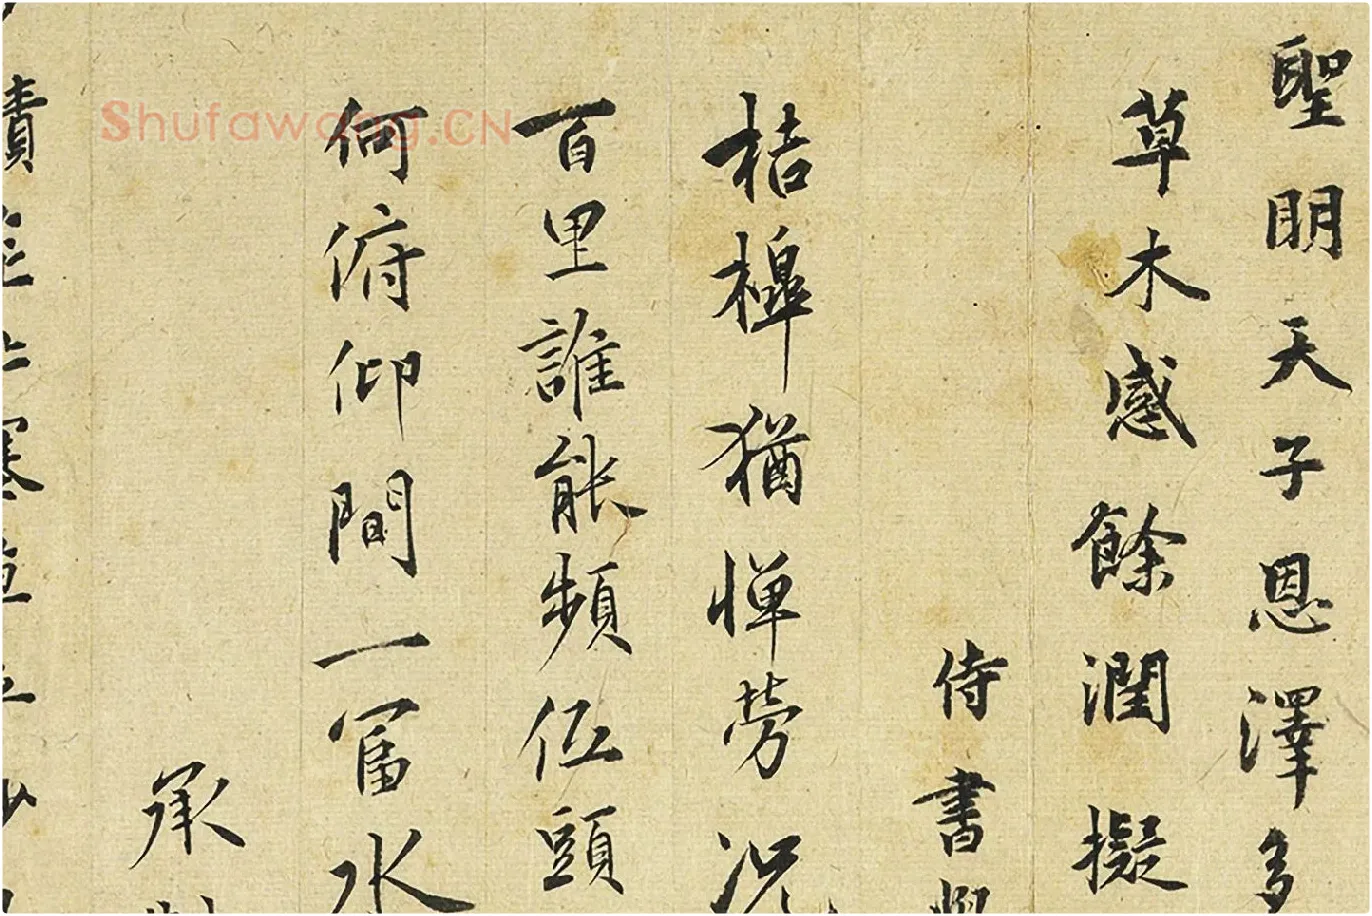 聖明天子恩澤多
草木感餘潤擬
侍書
桔槹猶惮勞况
百里誰能頻低頭
何俯仰間一富水
承
責
Shufawang.CN